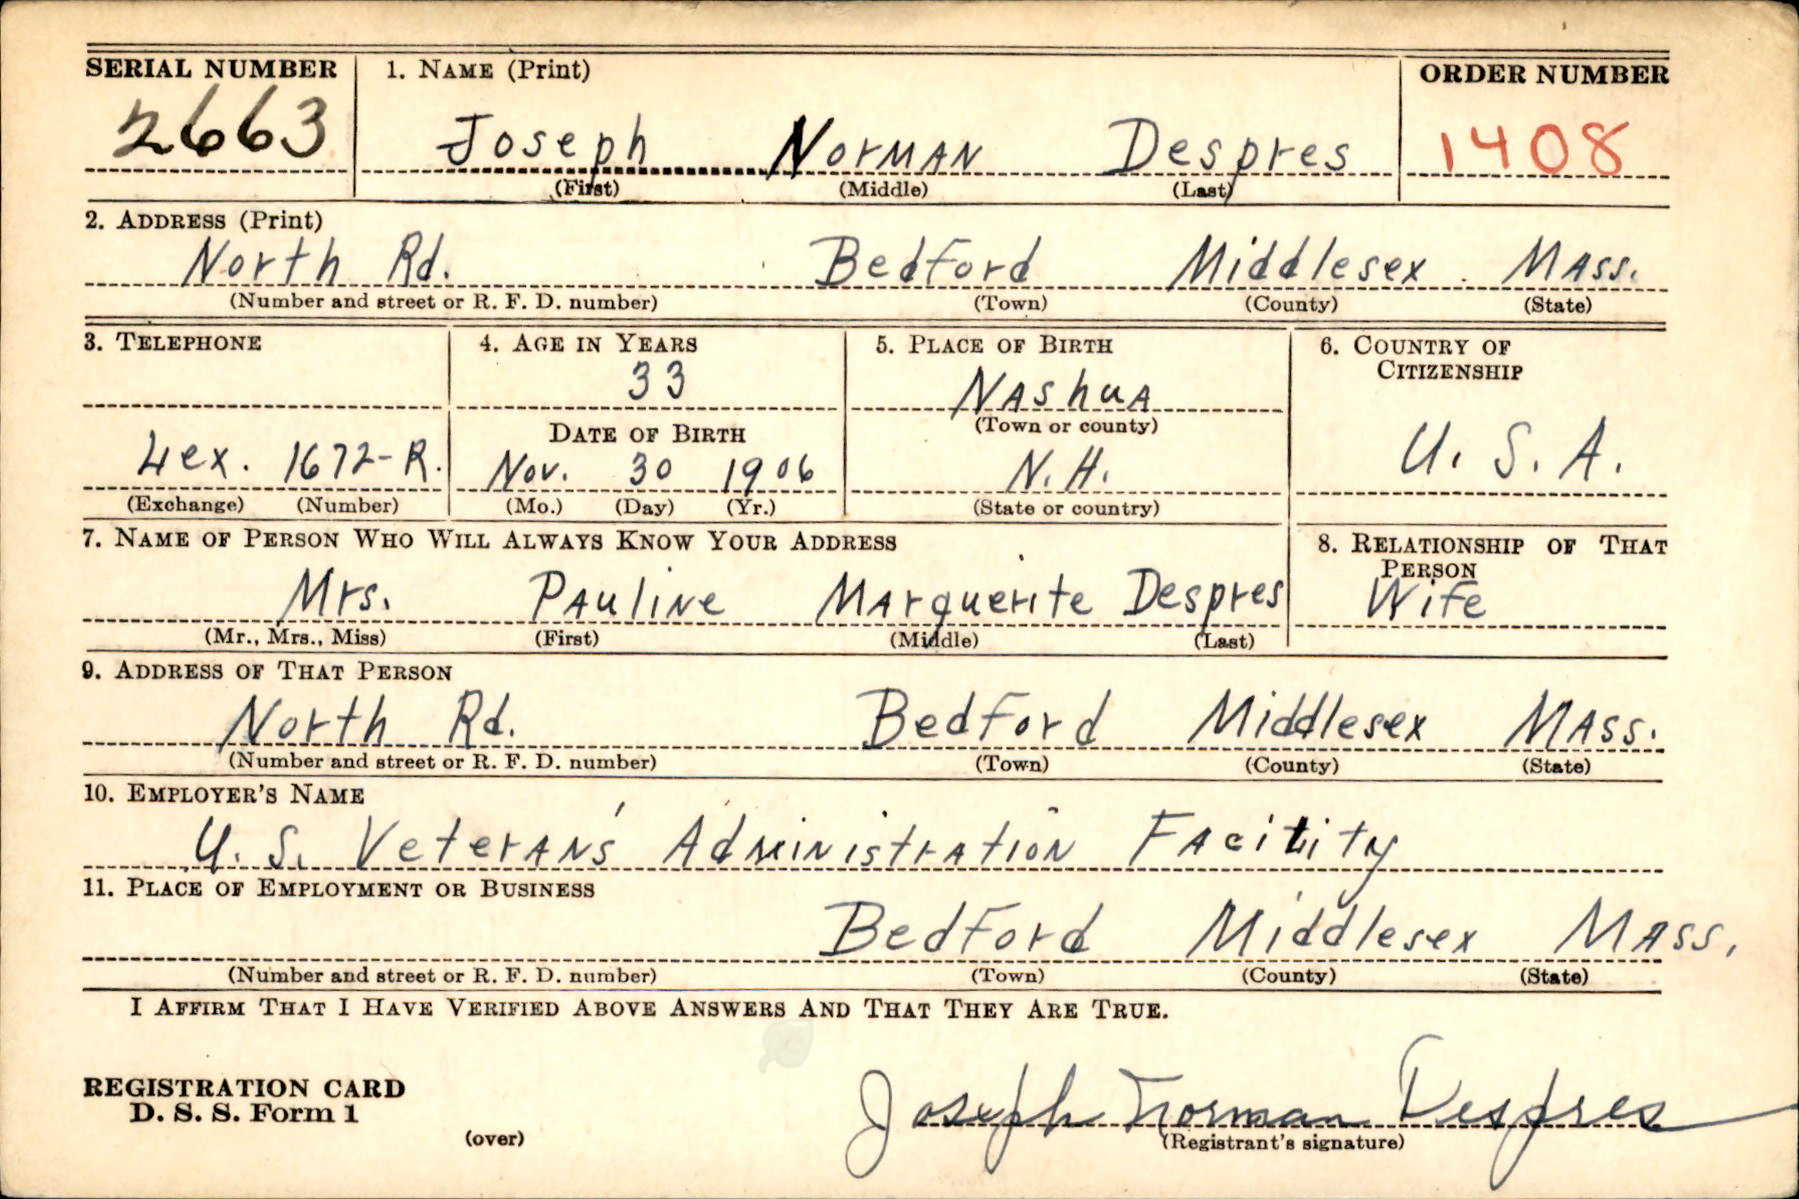 SERIAL NUMBER 1. NAME (Print) ORDER NUMBER
2663 Joseph Norman Despres 1408
(First) (Middle) (Last)
2. ADDRESS (Print)
North Rd. Bedford Middlesex Mass.
(Number and street or R. F. D. number) (Town) (County) (State)
3. TELEPHONE 4. AGE IN YEARS 5. PLACE OF BIRTH 6. COUNTRY OF CITIZENSHIP
33 Nashua
DATE OF BIRTH (Town or county)
Lex. 1672-R. Nov. 30 1906 N.H. U. S. A.
(Exchange) (Number) (Mo.) (Day) (Yr.) (State or country)
7. NAME OF PERSON WHO WILL ALWAYS KNOW YOUR ADDRESS 8. RELATIONSHIP OF THAT PERSON
Mrs. Pauline Marguerite Despres Wife
(Mr., Mrs., Miss) (First) (Middle) (Last)
9. ADDRESS OF THAT PERSON
North Rd. Bedford Middlesex Mass.
(Number and street or R. F. D. number) (Town) (County) (State)
10. EMPLOYER'S NAME
U. S. Veteran's Administration Facility
11. PLACE OF EMPLOYMENT OR BUSINESS
Bedford Middlesex Mass.
(Number and street or R. F. D. number) (Town) (County) (State)
I AFFIRM THAT I HAVE VERIFIED ABOVE ANSWERS AND THAT THEY ARE TRUE.
REGISTRATION CARD
D. S. S. Form 1
Joseph Norman Despres
(over) (Registrant's signature)